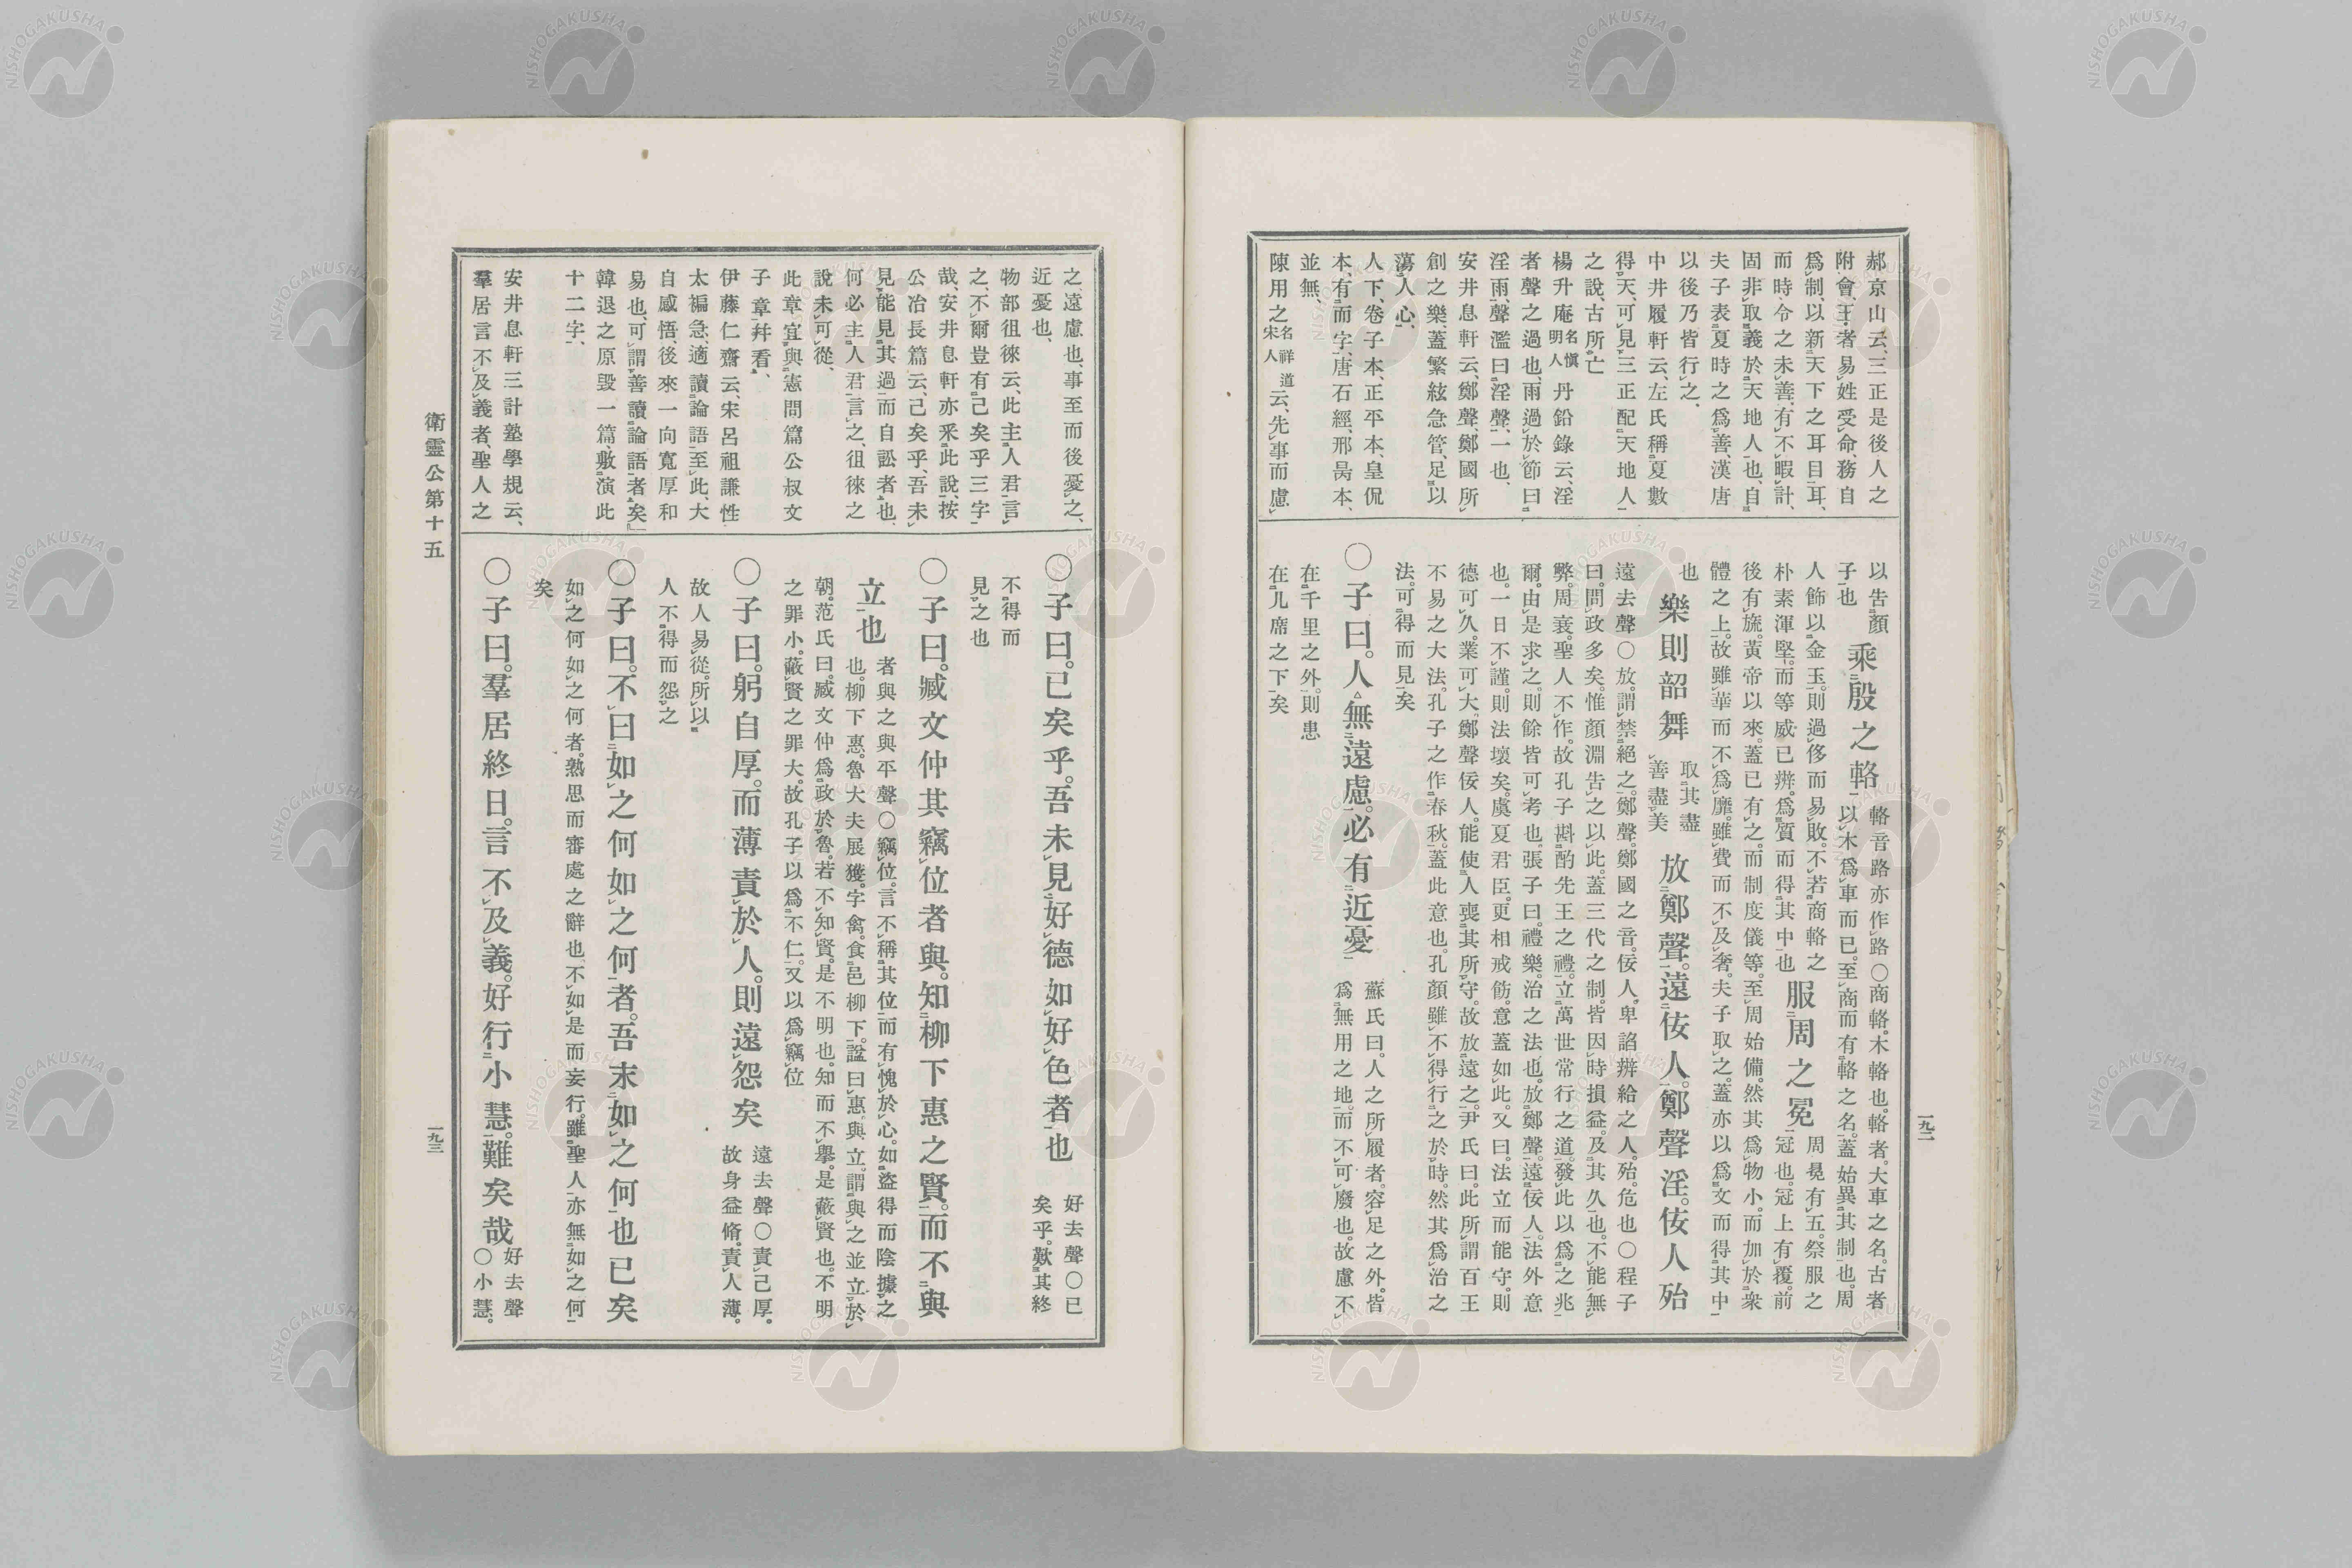 郝京山云、三正是後人之
附會、王者易姓受命、務自
爲制、以新天下之耳目耳、
而時令之未善、有不暇計、
固非取義於天地人也、自
夫子表夏時之爲善、漢唐
以後乃皆行之、
中井履軒云、左氏稱夏數
得天、可見三正配天地人
之說、古所亡
楊升庵名愼明人丹鉛錄云、淫
者聲之過也、雨過於節曰
淫雨、聲濫曰淫聲、一也、
安井息軒云、鄭聲、鄭國所
創之樂、蓋繁絃急管、足以
蕩人心、
人下、卷子本、正平本、皇侃
本、有而字、唐石經、邢昺本、
並無、
陳用之名祥道宋人云、先事而慮
以告顏
子也
乘殷之輅
輅音路亦作路○商輅。木輅也。輅者。大車之名。古者
以木爲車而已。至商而有輅之名。蓋始異其制也。周
人飾以金玉。則過侈而易敗。不若商輅之
朴素渾堅。而等威已辨。爲質而得其中也
服周之冕
周冕有五。祭服之
冠也。冠上有覆。前
後有旒。黃帝以來。蓋已有之。而制度儀等。至周始備。然其爲物小。而加於衆
體之上。故雖華而不爲靡。雖費而不及奢。夫子取之。蓋亦以爲文而得其中
也
樂則韶舞
取其盡
善盡美
放鄭聲。遠佞人。鄭聲淫。佞人殆
遠去聲○放。謂禁絕之。鄭聲。鄭國之音。佞人。卑諂辨給之人。殆。危也○程子
曰。問政多矣。惟顏淵告之以此。蓋三代之制。皆因時損益。及其久也。不能無
弊。周衰。聖人不作。故孔子斟酌先王之禮。立萬世常行之道。發此以爲之兆
爾。由是求之。則餘皆可考也。張子曰。禮樂。治之法也。放鄭聲。遠佞人。法外意
也。一日不謹。則法壞矣。虞夏君臣。更相戒飭。意蓋如此。又曰。法立而能守。則
德可久。業可大。鄭聲佞人。能使人喪其所守。故放遠之。尹氏曰。此所謂百王
不易之大法。孔子之作春秋。蓋此意也。孔顏雖不得行之於時。然其爲治之
法。可得而見矣
○子曰。人無遠慮。必有近憂
蘇氏曰。人之所履者。容足之外。皆
爲無用之地。而不可廢也。故慮不
在千里之外。則患
在几席之下矣
一九二
之、遠慮也、事至而後憂之、
近憂也、
物部徂徠云、此主人君言
之、不爾豈有已矣乎三字
哉、安井息軒亦釆此說、按
公冶長篇云、已矣乎、吾未
見能見其過而自訟者也、
何必主人君言之、徂徠之
說未可從、
此章宜與憲問篇公叔文
子章幷看、
伊藤仁齋云、宋呂祖謙性
太褊急、適讀論語至此、大
自感悟、後來一向寬厚和
易也、可謂善讀論語者矣、
韓退之原毀一篇、敷演此
十二字、
安井息軒三計塾學規云、
羣居言不及義者、聖人之
○子曰。已矣乎。吾未見好德如好色者也
好去聲○已
矣乎。歎其終
不得而
見之也
○子曰。臧文仲其竊位者與。知柳下惠之賢。而不與
立也
者與之與平聲○竊位。言不稱其位而有愧於心。如盜得而陰據之
也。柳下惠。魯大夫展獲。字禽。食邑柳下。諡曰惠。與立。謂與之並立於
朝。范氏曰。臧文仲爲政於魯。若不知賢。是不明也。知而不擧。是蔽賢也。不明
之罪小。蔽賢之罪大。故孔子以爲不仁。又以爲竊位
○子曰。躬自厚。而薄責於人。則遠怨矣
遠去聲○責己厚。
故身益脩。責人薄。
故人易從。所以
人不得而怨之
○子曰。不曰如之何如之何者。吾末如之何也已矣
如之何如之何者。熟思而審處之辭也。不如是而妄行。雖聖人亦無如之何
矣
○子曰。羣居終日。言不及義。好行小慧。難矣哉
好去聲
○小慧。
衛靈公第十五
一九三